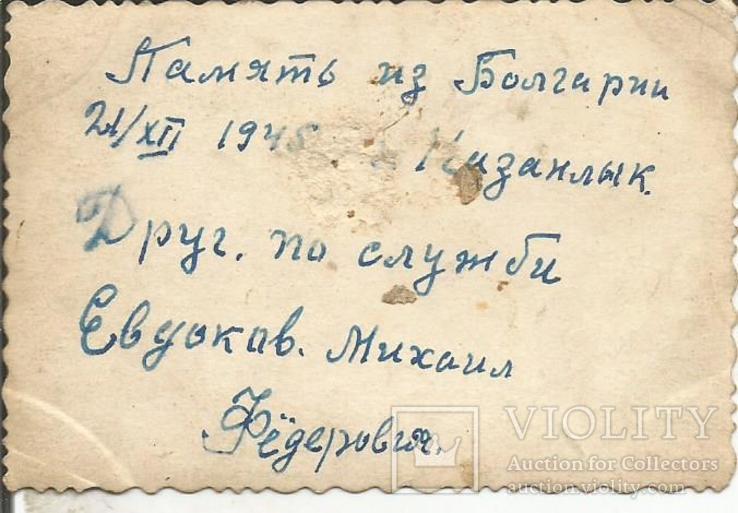 Память из Болгарии
21/XII 1945 Казанлык.
Друг. по служби
Евдоков. Михаил
Фёдерович.
VIOLITY
Auction for Collectors
auction.violity.com